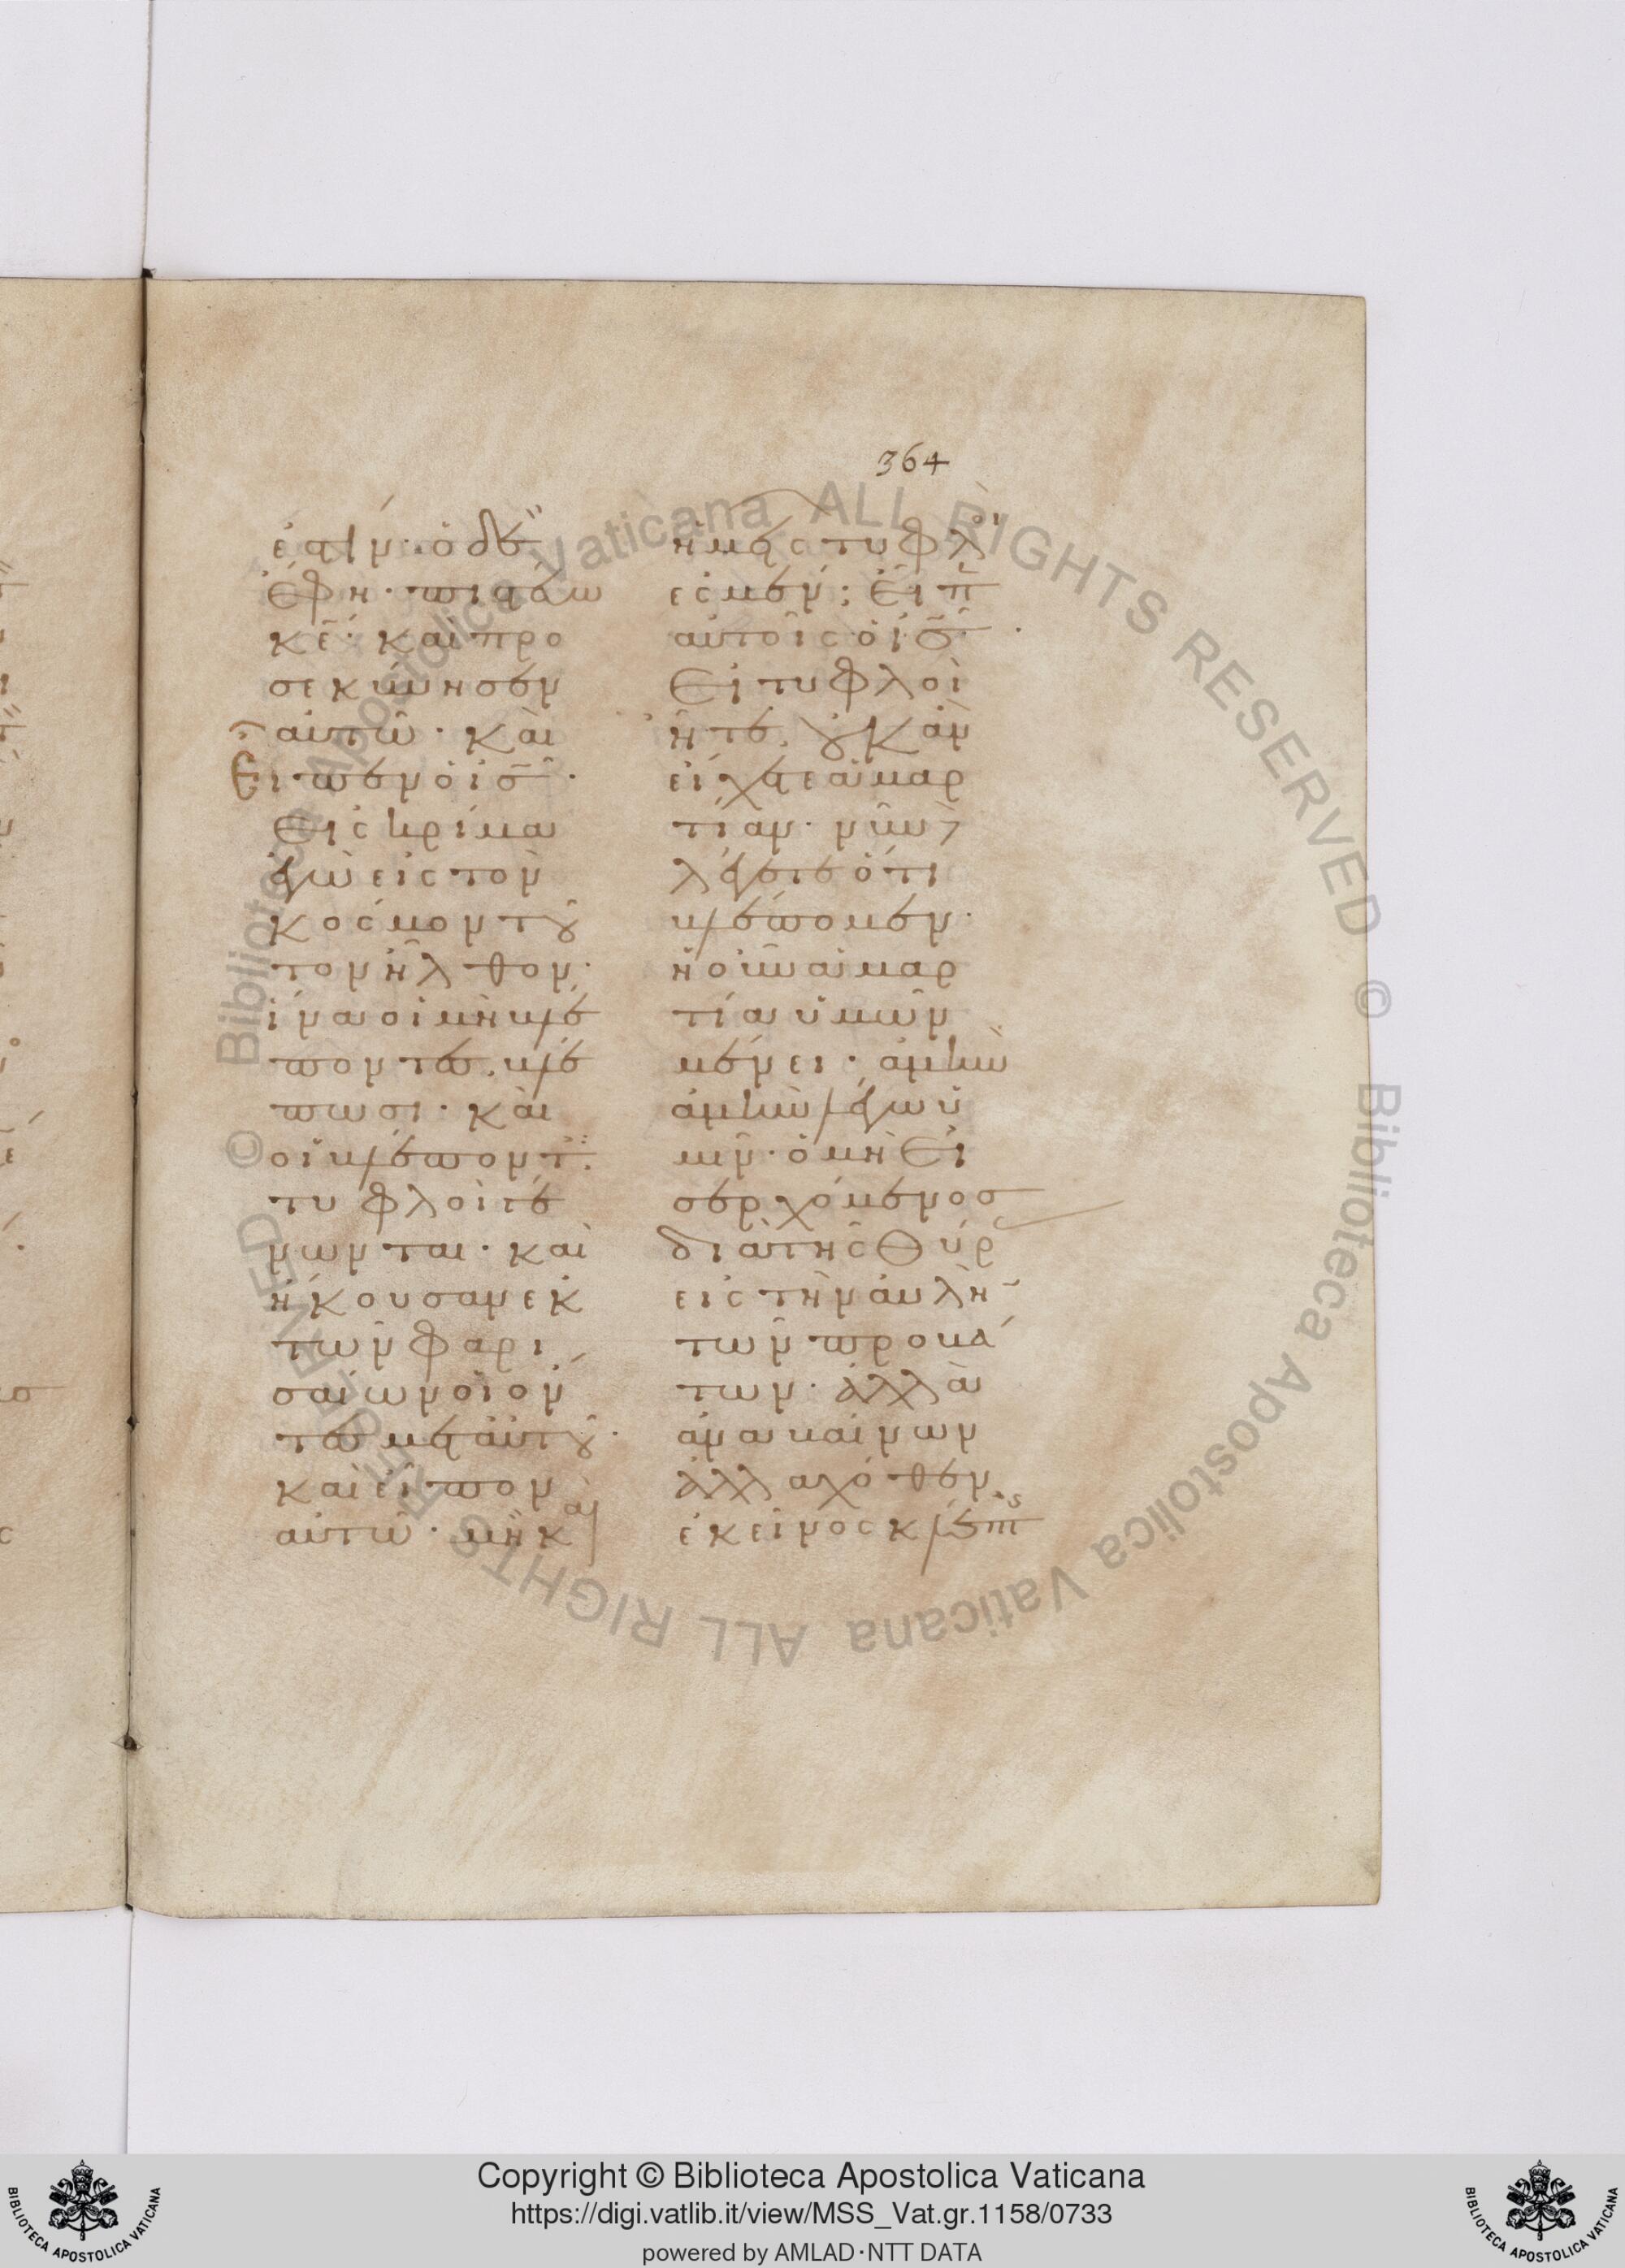 364
ἐστὶν· ὁ δὲ
ἔφη· πιστεύω
κε̄· καὶ προ
σεκύνησεν
αὐτῶ· καὶ
εἶπεν ὁ ις̄·
εἰς κρίμα
ἐγὼ εἰς τὸν
κόσμον τοῦ
τον ἦλθον·
ἵνα οἱ μὴ βλέ
ποντες, βλέ
πωσι· καὶ
οἱ βλέποντ
τυφλοὶ γέ
νωνται· καὶ
ἤκουσαν ἐκ
τῶν φαρι
σαίων οἱ ὄν
τες μετ αὐτοῦ·
καὶ εἶπον
αὐτῶ· μὴ καὶ
ἡμεῖς τυφλοί
ἐσμεν; εἶπ
αὐτοῖς ὁ ις̄·
εἰ τυφλοὶ
ἦτε, οὐκ ἂν
εἴχετε ἁμαρ
τίαν· νῦν δὲ
λέγετε ὅτι
βλέπομεν·
ἡ οὖν ἁμαρ
τία ὑμῶν
μένει· ἀμὴν
ἀμὴν λέγω ὑ
μῖν· ὁ μὴ εἰ
σερχόμενος
διὰ τῆς θύρ
εἰς τὴν αὐλὴ
τῶν προβά
των· ἀλλὰ
ἀναβαίνων
ἀλλαχόθεν
ἐκεῖνος κλέπτης
Copyright © Biblioteca Apostolica Vaticana
https://digi.vatlib.it/view/MSS_Vat.gr.1158/0733
powered by AMLAD·NTT DATA
© Biblioteca Apostolica Vaticana ALL RIGHTS RESERVED © Biblioteca Apostolica Vaticana ALL RIGHTS RESERVED
BIBLIOTECA APOSTOLICA VATICANA
BIBLIOTECA APOSTOLICA VATICANA